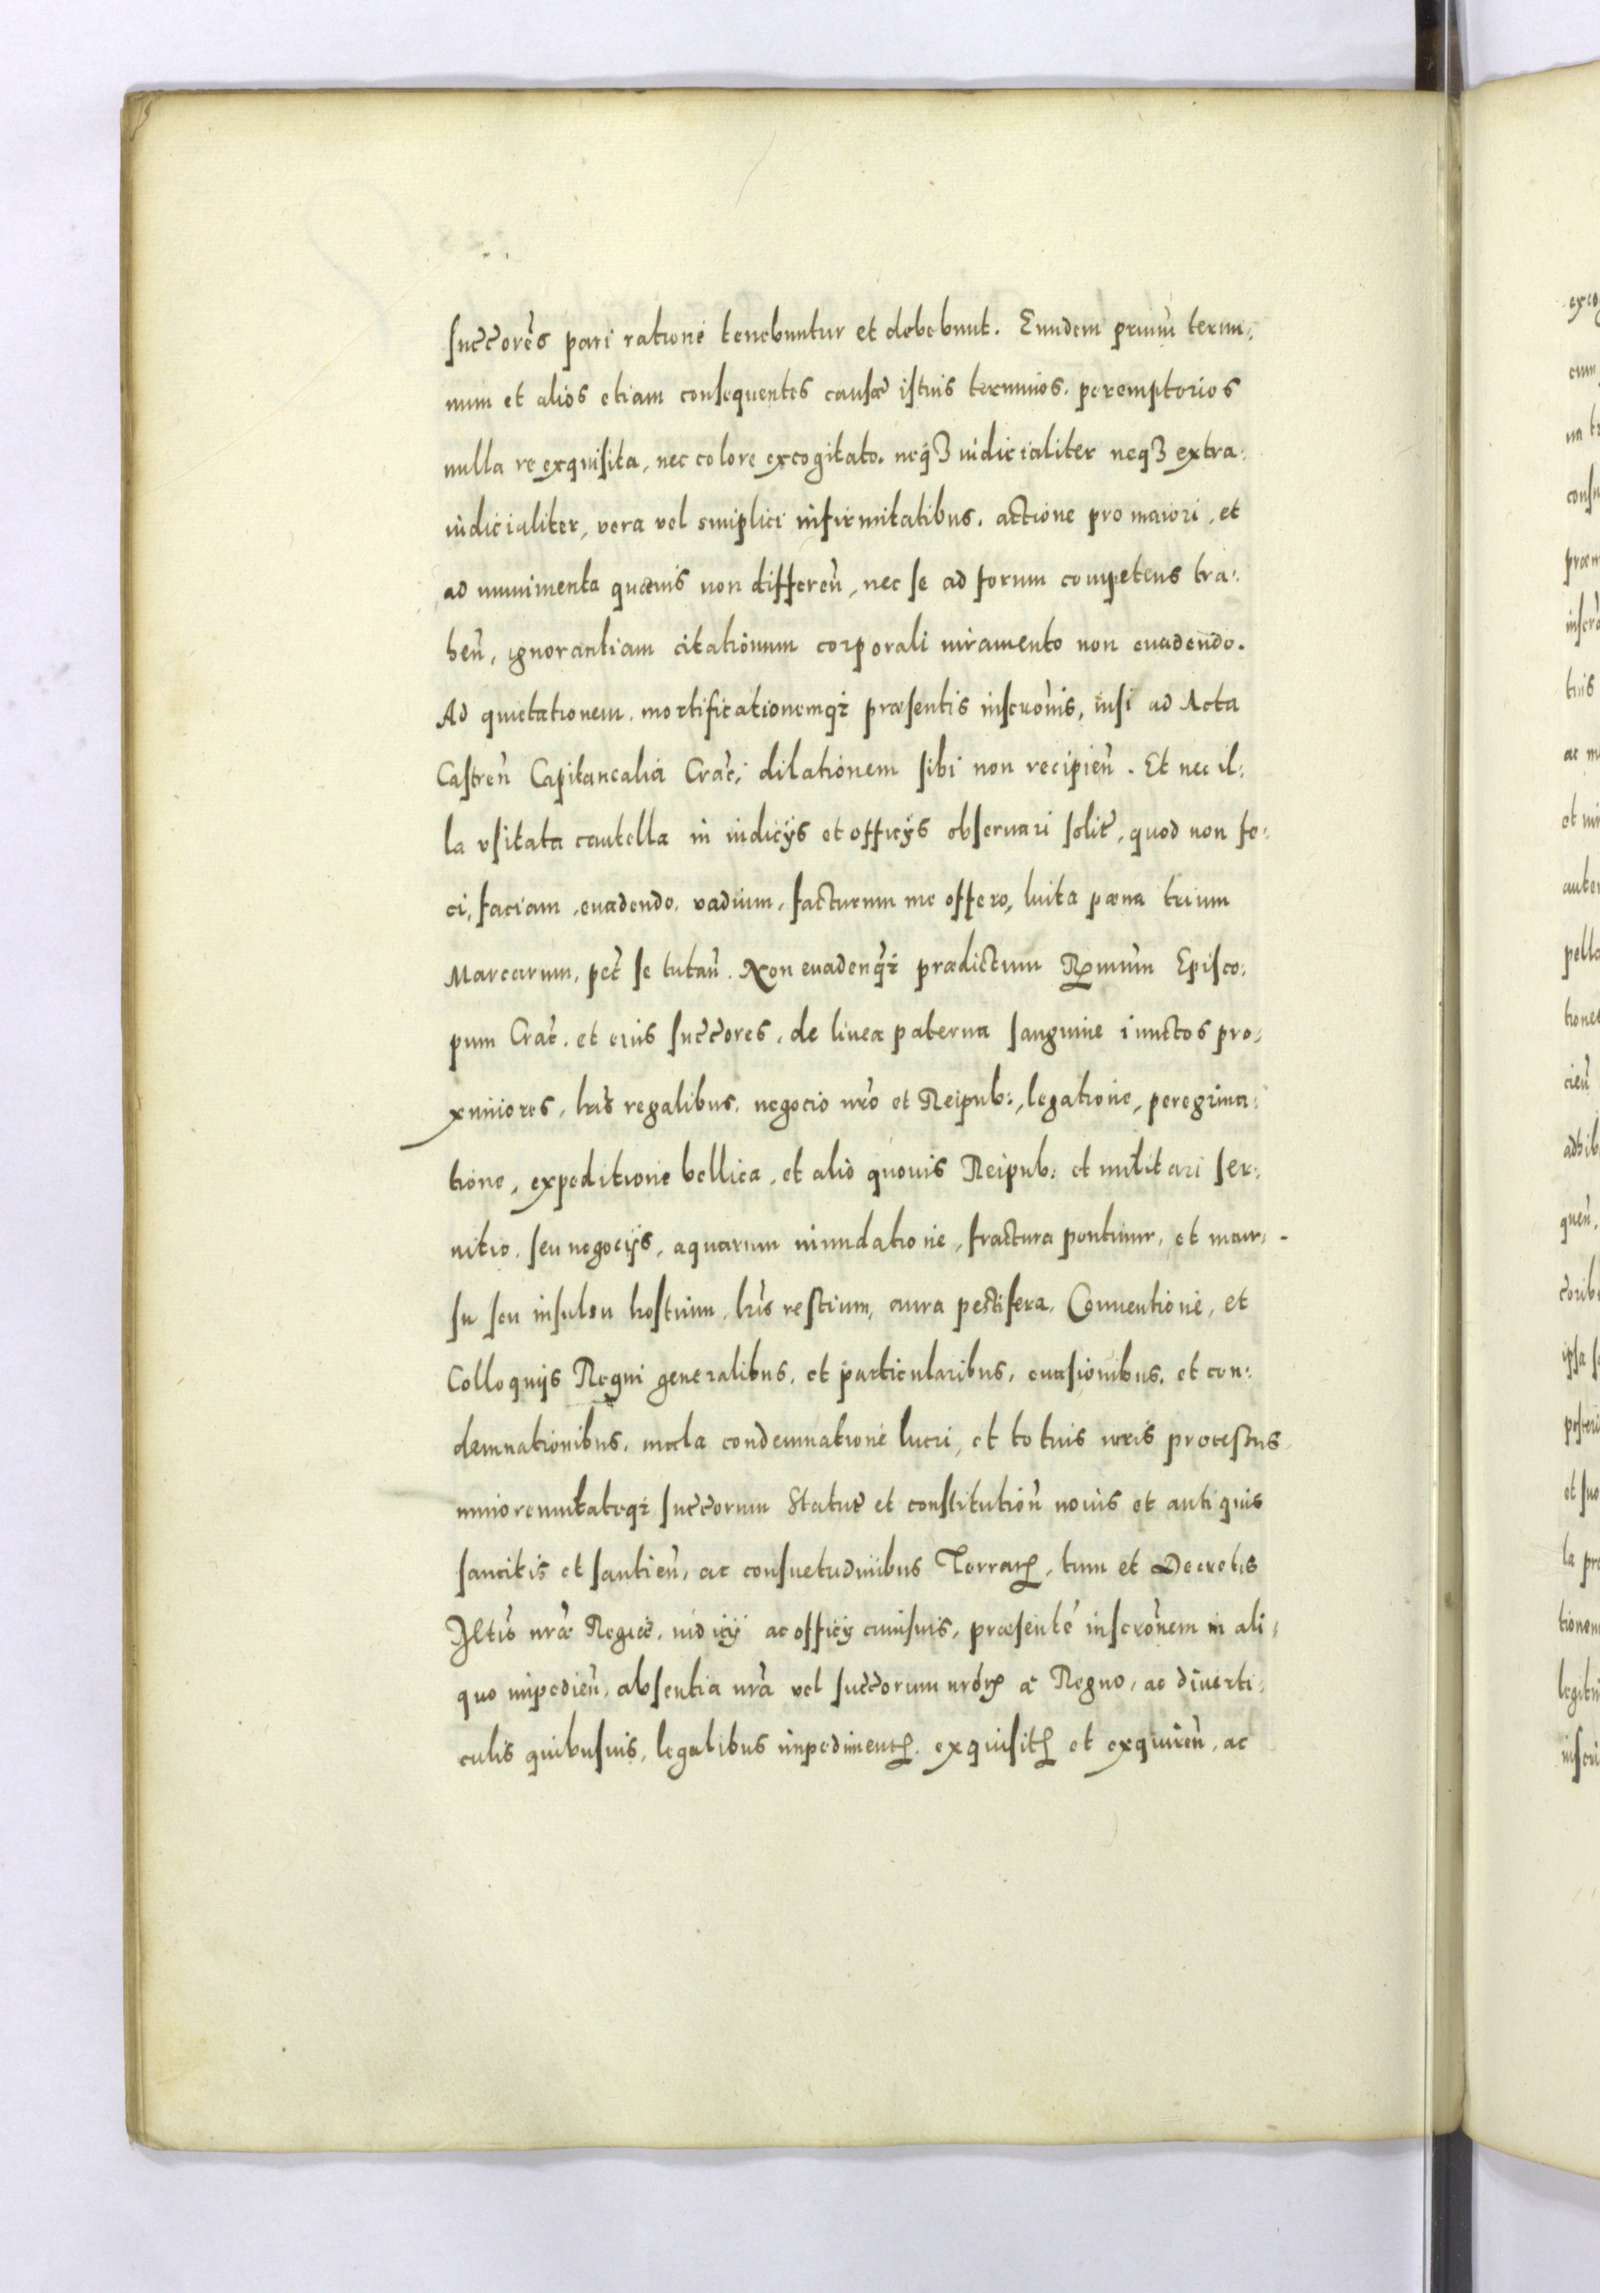 succores pari ratione tenebuntur et debebunt. Eundem primū termi:
num et alios etiam consequentes causæ istius terminos, peremptorios
nulla re exquisita, nec colore excogitato. neqȝ iudicialiter neqȝ extra:
iudicialiter, vera vel simplici infirmitatibus, actione pro maiori, et
ad munimenta quævis non differeñ, nec se ad forum competens tra:
heñ, ignorantiam citationum corporali iuramento non euadendo.
Ad quietationem, mortificationemqȝ præsentis inscrōnis, nisi ad Acta
Castreñ Capitanealia Crac̄, dilationem sibi non recipieñ. Et nec il:
la vsitata cautella in iudicijs et officijs obseruari solit̄, quod non fe:
ci, faciam, euadendo, vadium, facturum me offero, luita pœna trium
Marcarum, pet̄ se tutañ. Non euadenqȝ prædictum Rꝑmum Episco:
pum Crac̄. et eius succores, de linea paterna sanguine iunctos pro:
ximiores, lr̄is regalibus, negocio nr̄o et Reipub:, legatione, peregrina:
tione, expeditione bellica, et alio quouis Reipub: et militari ser:
uitio, seu negocijs, aquarum inundatione, fractura pontium, et incur:
su seu insultu hostium, lr̄is restium, aura pestifera, Conuentione, et
Colloquijs Regni generalibus, et particularibus, euasionibus, et con:
demnationibus, mala condemnatione lucri, et totius iuris processus
minorennitateqȝ succorum Statut̄ et constitutioñ nouis et antiquis
sancitis et santieñ, ac consuetudinibus Terrarꝝ, tum et Decretis
Mt̄is nr̄æ Regiæ, iudicij ac officij cuiusuis, præsente inscrōnem in ali:
quo impedieñ, absentia nr̄a vel succorum nr̄orꝝ a Regno, ac diuerti:
culis quibusuis, legalibus impedimentꝭ, exquisitꝭ et exquireñ, ac